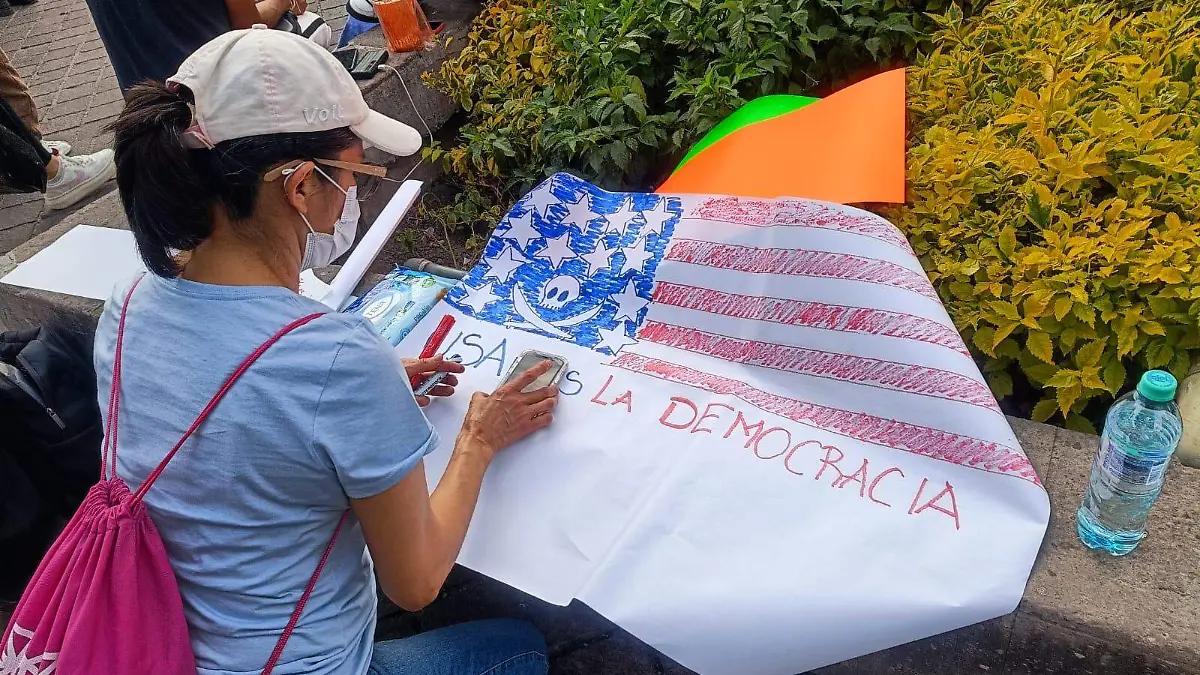 Voit
USA LA DEMOCRACIA